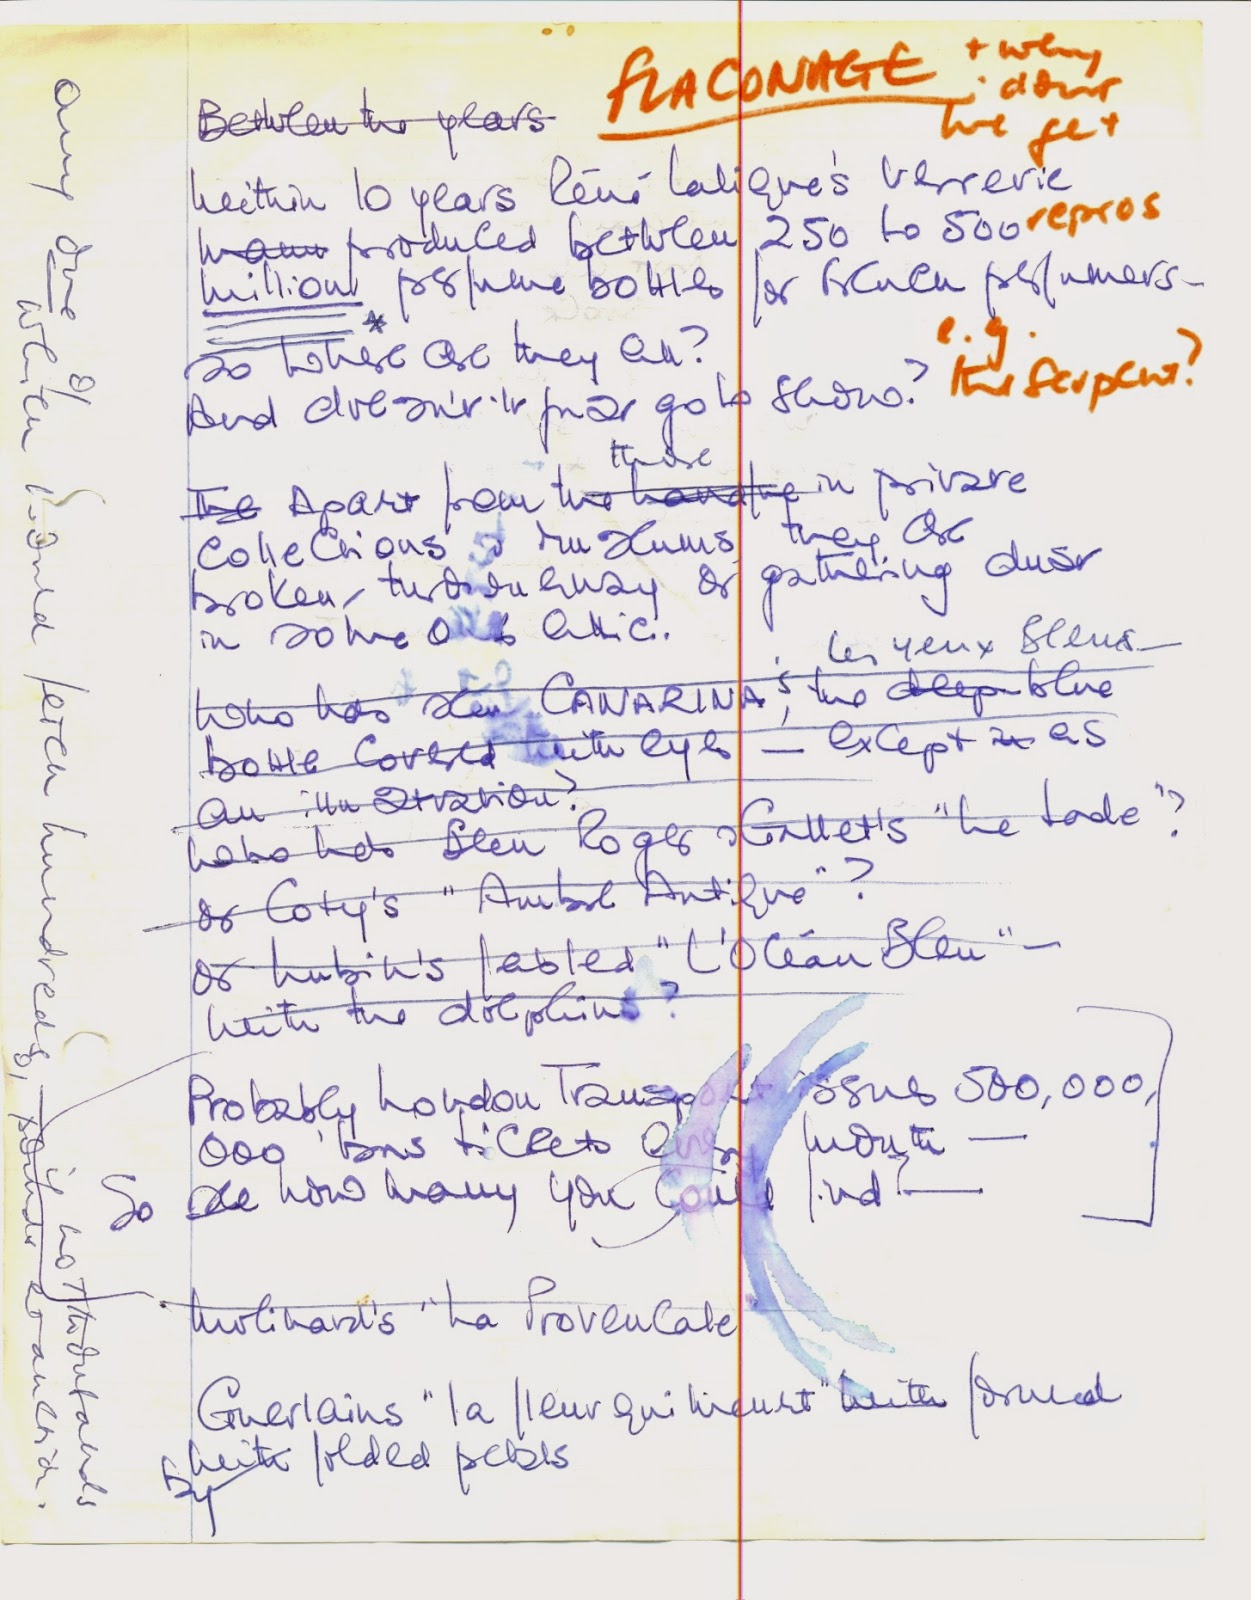 FLACONAGE
+ why
don't
we get
repros
e.g.
the Serpent?
Between the years
Within 10 years René Lalique's Verrerie
produced between 250 to 500
million perfume bottles for French perfumers -
*
So where are they all?
And doesn't it just go to show?
those
The Apart from the in private
collections & museums they are
broken, thrown away or gathering dust
in some attic..
Les yeux Bleus -
Who has seen CANARINA's, the deep blue
bottle covered with eyes - except as
an illustration?
Who has seen Roger & Gallet's "Le Jade"?
or Coty's "Ambre Antique"?
or Lubin's fabled "L'Océan Bleu" -
with the dolphins?
Probably London Transport issues 500,000,
000 bus tickets every month -
see how many you could find? -
So
Molinard's "La Provencale"
Guerlains "la fleur qui meurt" with formed
with folded petals
by
any one of
which would fetch hundreds,
if not thousands
at auction.